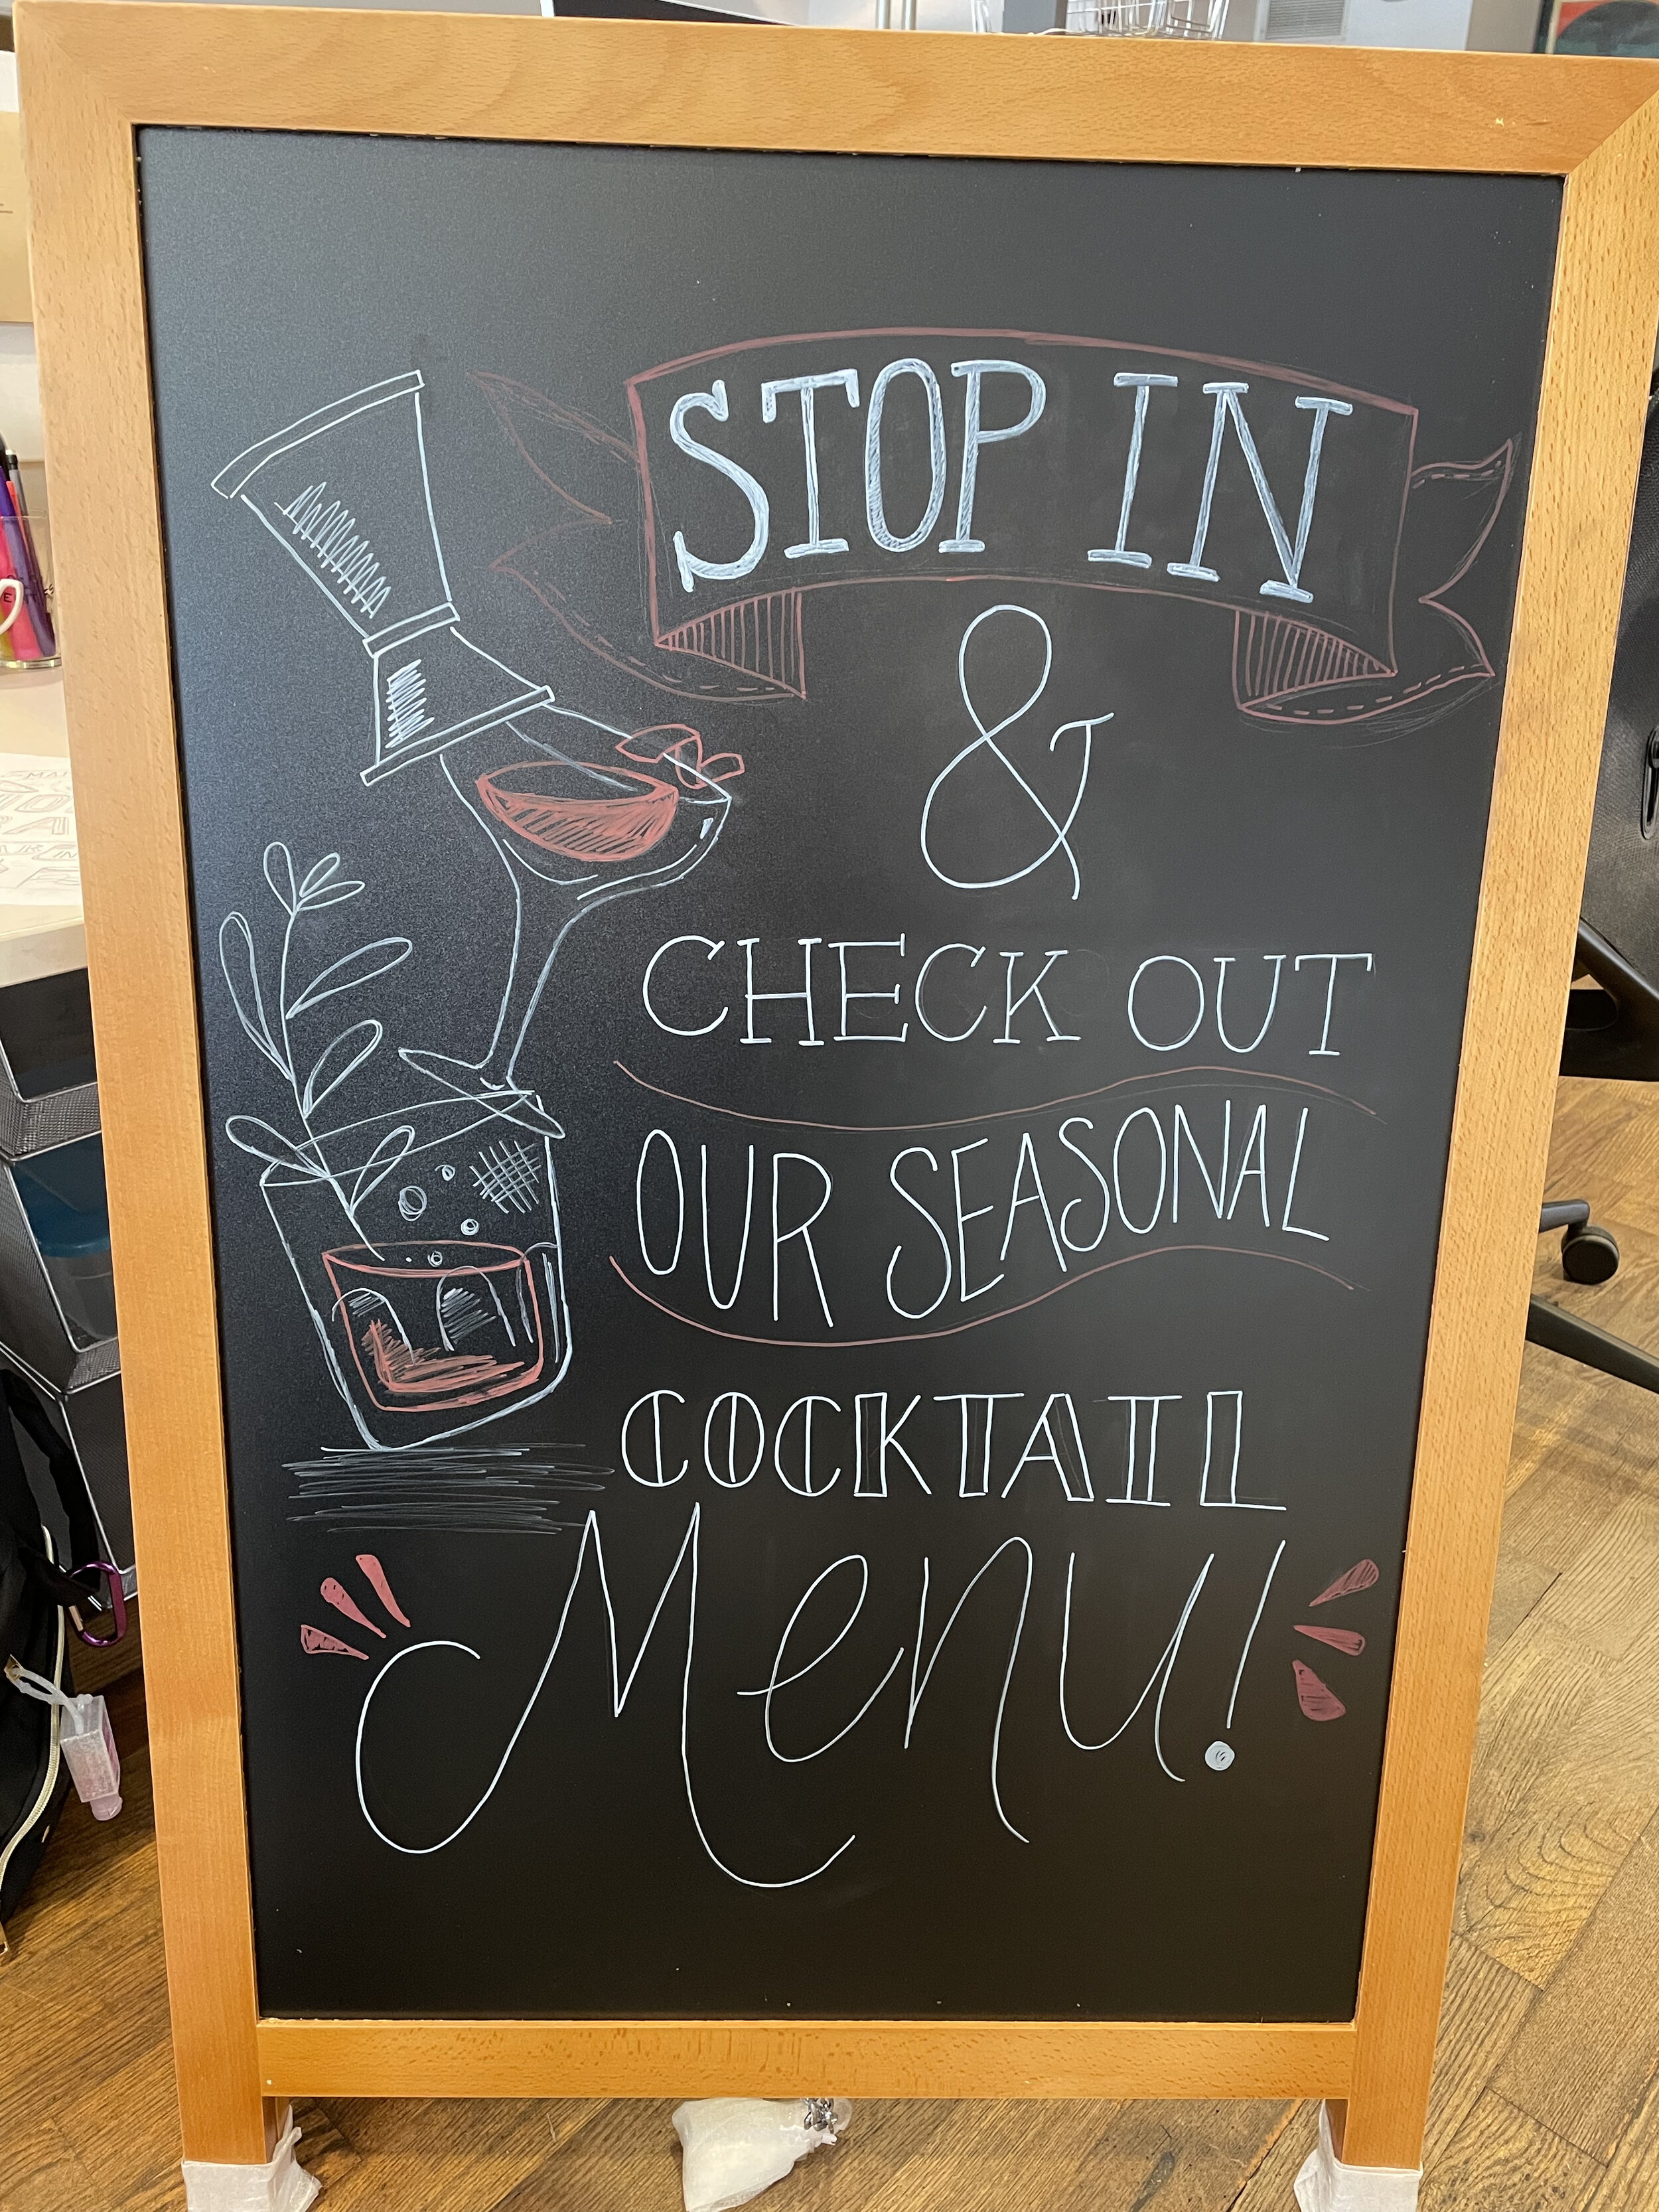 STOP IN
&
CHECK OUT
OUR SEASONAL
COCKTAIL
Menu!